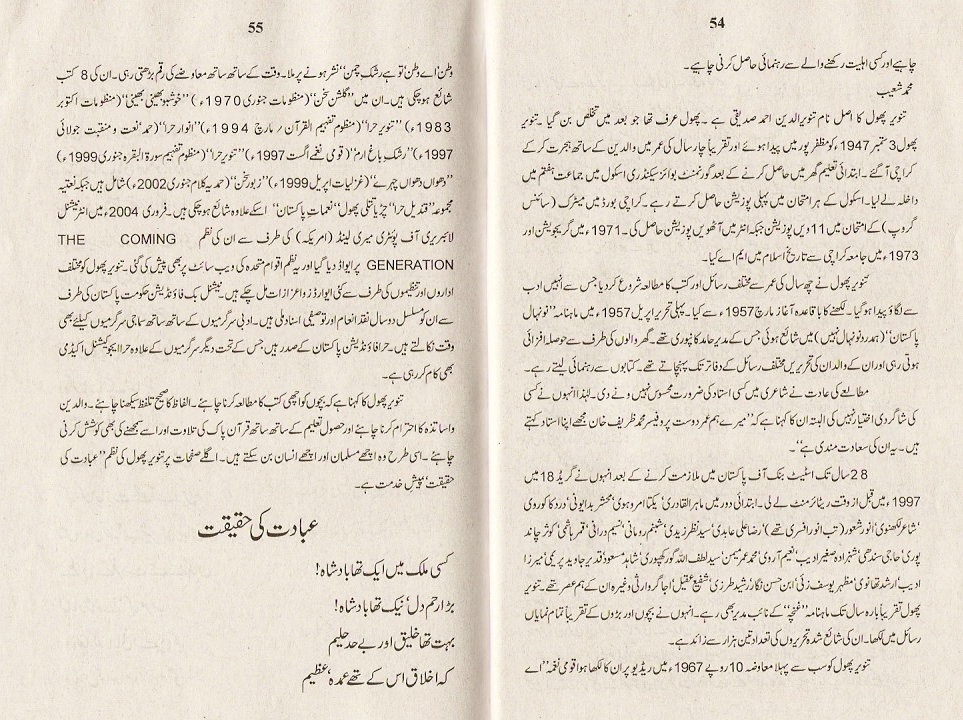 54
چاہیے اور کسی اہلیت رکھنے والے سے رہنمائی حاصل کرنی چاہیے۔
محمد شعیب
تنویر پھول کا اصل نام تنویر الدین احمد صدیقی ہے ۔ پھول عرف تھا جو بعد میں تخلص بن گیا ۔ تنویر
پھول 3 ستمبر 1947ء کو مظفر پور میں پیدا ہوئے اور تقریباً چار سال کی عمر میں والدین کے ساتھ ہجرت کر کے
کراچی آ گئے ۔ ابتدائی تعلیم گھر میں حاصل کرنے کے بعد گورنمنٹ بوائز سیکنڈری اسکول میں جماعت ہفتم میں
داخلہ لے لیا۔ اسکول کے ہر امتحان میں پہلی پوزیشن حاصل کرتے رہے ۔ کراچی بورڈ میں میٹرک (سائنس
گروپ) کے امتحان میں 11 ویں پوزیشن جبکہ انٹر میں آٹھویں پوزیشن حاصل کی ۔ 1971ء میں گریجویشن اور
1973ء میں جامعہ کراچی سے تاریخ اسلام میں ایم اے کیا۔
تنویر پھول نے چھ سال کی عمر سے مختلف رسائل اور کتب کا مطالعہ شروع کر دیا جس سے انہیں ادب
سے لگاؤ پیدا ہو گیا ۔ لکھنے کا باقاعدہ آغاز مارچ 1957ء سے کیا۔ پہلی تحریر اپریل 1957ء میں ماہنامہ ”نونہال
پاکستان“ (ہمدرد نونہال نہیں) میں شائع ہوئی جس کے مدیر حامد کانپوری تھے ۔ گھر والوں کی طرف سے حوصلہ افزائی
ہوتی رہی اور ان کے والد ان کی تحریریں مختلف رسائل کے دفاتر تک پہنچاتے تھے ۔ کتابوں سے رہنمائی لیتے رہے ۔
مطالعے کی عادت نے شاعری میں کسی استاد کی ضرورت محسوس نہیں ہونے دی ۔ لہٰذا انہوں نے کسی
کی شاگردی اختیار نہیں کی البتہ ان کا کہنا ہے کہ ”میرے ہم عمر دوست پروفیسر محمد ظریف خان مجھے اپنا استاد کہتے
ہیں ۔ یہ ان کی سعادت مندی ہے“۔
28 سال تک اسٹیٹ بنک آف پاکستان میں ملازمت کرنے کے بعد انہوں نے گریڈ 18 میں
1997ء میں قبل از وقت ریٹائرمنٹ لے لی۔ ابتدائی دور میں ماہر القادری‘ یکتا امروہوی‘ محشر بدایونی‘ درد کاکوروی
‘ شاعر لکھنوی‘ انور شعور (تب انور افسری تھے)‘ رضا علی عابدی‘ سید نظر زیدی‘ شبنم رومانی‘ نسیم درانی‘ قمر ہاشمی‘ کوثر چاند
پوری‘ حاجی سندھی‘ شہزادہ صغیر ادیب‘ نعیم آروی‘ محمد عمر میمن‘ سید لطف اللہ گورکھپوری‘ شاہد مسعود‘ قدیر جاوید پریمی‘ میرزا
ادیب‘ ارشد تھانوی‘ مظہر یوسف زئی‘ ابن حسن نگار‘ رشید طرزی‘ شفیع عقیل‘ اجاگر وارثی وغیرہ ان کے ہم عصر تھے ۔ تنویر
پھول تقریباً بارہ سال تک ماہنامہ ”غنچہ“ کے نائب مدیر بھی رہے ۔ انہوں نے بچوں اور بڑوں کے تقریباً تمام نمایاں
رسائل میں لکھا۔ ان کی شائع شدہ تحریروں کی تعداد تین ہزار سے زائد ہے۔
تنویر پھول کو سب سے پہلا معاوضہ 10 روپے 1967ء میں ریڈیو پر ان کا لکھا ہوا قومی نغمہ ”اے
55
وطن‘ اے وطن‘ تو ہے رشک چمن“ نشر ہونے پر ملا ۔ وقت کے ساتھ ساتھ معاوضے کی رقم بڑھتی رہی ۔ ان کی 8 کتب
شائع ہو چکی ہیں۔ ان میں ”گلشن سخن“ (منظومات جنوری 1970ء) ”خوشبو بھینی بھینی“ (منظومات اکتوبر
1983ء) ”تنویر حرا“ (منظوم تفہیم القرآن ، مارچ 1994ء) ”انوار حرا“ (حمد‘ نعت و منقبت جولائی
1997ء) ”رشک باغ ارم“ (قومی نغمے اگست 1997ء) ”تنویر حرا“ (منظوم تفہیم سورۃ البقرہ جنوری 1999ء)
”دھواں دھواں چہرے“ (غزلیات اپریل 1999ء) ”زبور سخن“ (حمدیہ کلام جنوری 2002ء) شامل ہیں جبکہ نعتیہ
مجموعہ ”قندیل حرا“ ”چڑیا‘ تتلی‘ پھول“ ”نغمات پاکستان“ اسکے علاوہ شائع ہو چکی ہیں ۔ فروری 2004ء میں انٹرنیشنل
لائبریری آف پوئٹری میری لینڈ (امریکہ) کی طرف سے ان کی نظم THE COMING
GENERATION پر ایوارڈ دیا گیا اور یہ نظم اقوام متحدہ کی ویب سائٹ پر بھی پیش کی گئی ۔ تنویر پھول کو مختلف
اداروں اور تنظیموں کی طرف سے کئی ایوارڈز و اعزازات مل چکے ہیں ۔ نیشنل بک فاؤنڈیشن حکومت پاکستان کی طرف
سے ان کو مسلسل دو سال نقد انعام اور توصیفی اسناد ملی ہیں ۔ ادبی سرگرمیوں کے ساتھ ساتھ سماجی سرگرمیوں کیلئے بھی
وقت نکالتے ہیں ۔ حرا فاؤنڈیشن پاکستان کے صدر ہیں جس کے تحت دیگر سرگرمیوں کے علاوہ حرا ایجوکیشنل اکیڈمی
بھی کام کر رہی ہے ۔
تنویر پھول کا کہنا ہے کہ بچوں کو اچھی کتب کا مطالعہ کرنا چاہئے ۔ الفاظ کا صحیح تلفظ سیکھنا چاہئے ۔ والدین
و اساتذہ کا احترام کرنا چاہئے اور حصول تعلیم کے ساتھ ساتھ قرآن پاک کی تلاوت اور اسے سمجھنے کی بھی کوشش کرنی
چاہئے ۔ اسی طرح وہ اچھے مسلمان اور اچھے انسان بن سکتے ہیں ۔ اگلے صفحات پر تنویر پھول کی نظم ”عبادت کی
حقیقت“ پیش خدمت ہے ۔
عبادت کی حقیقت
کسی ملک میں ایک تھا بادشاہ!
بڑا رحم دل‘ نیک تھا بادشاہ!
بہت تھا خلیق اور بے حد حلیم
کہ اخلاق اس کے تھے عمدہ‘ عظیم